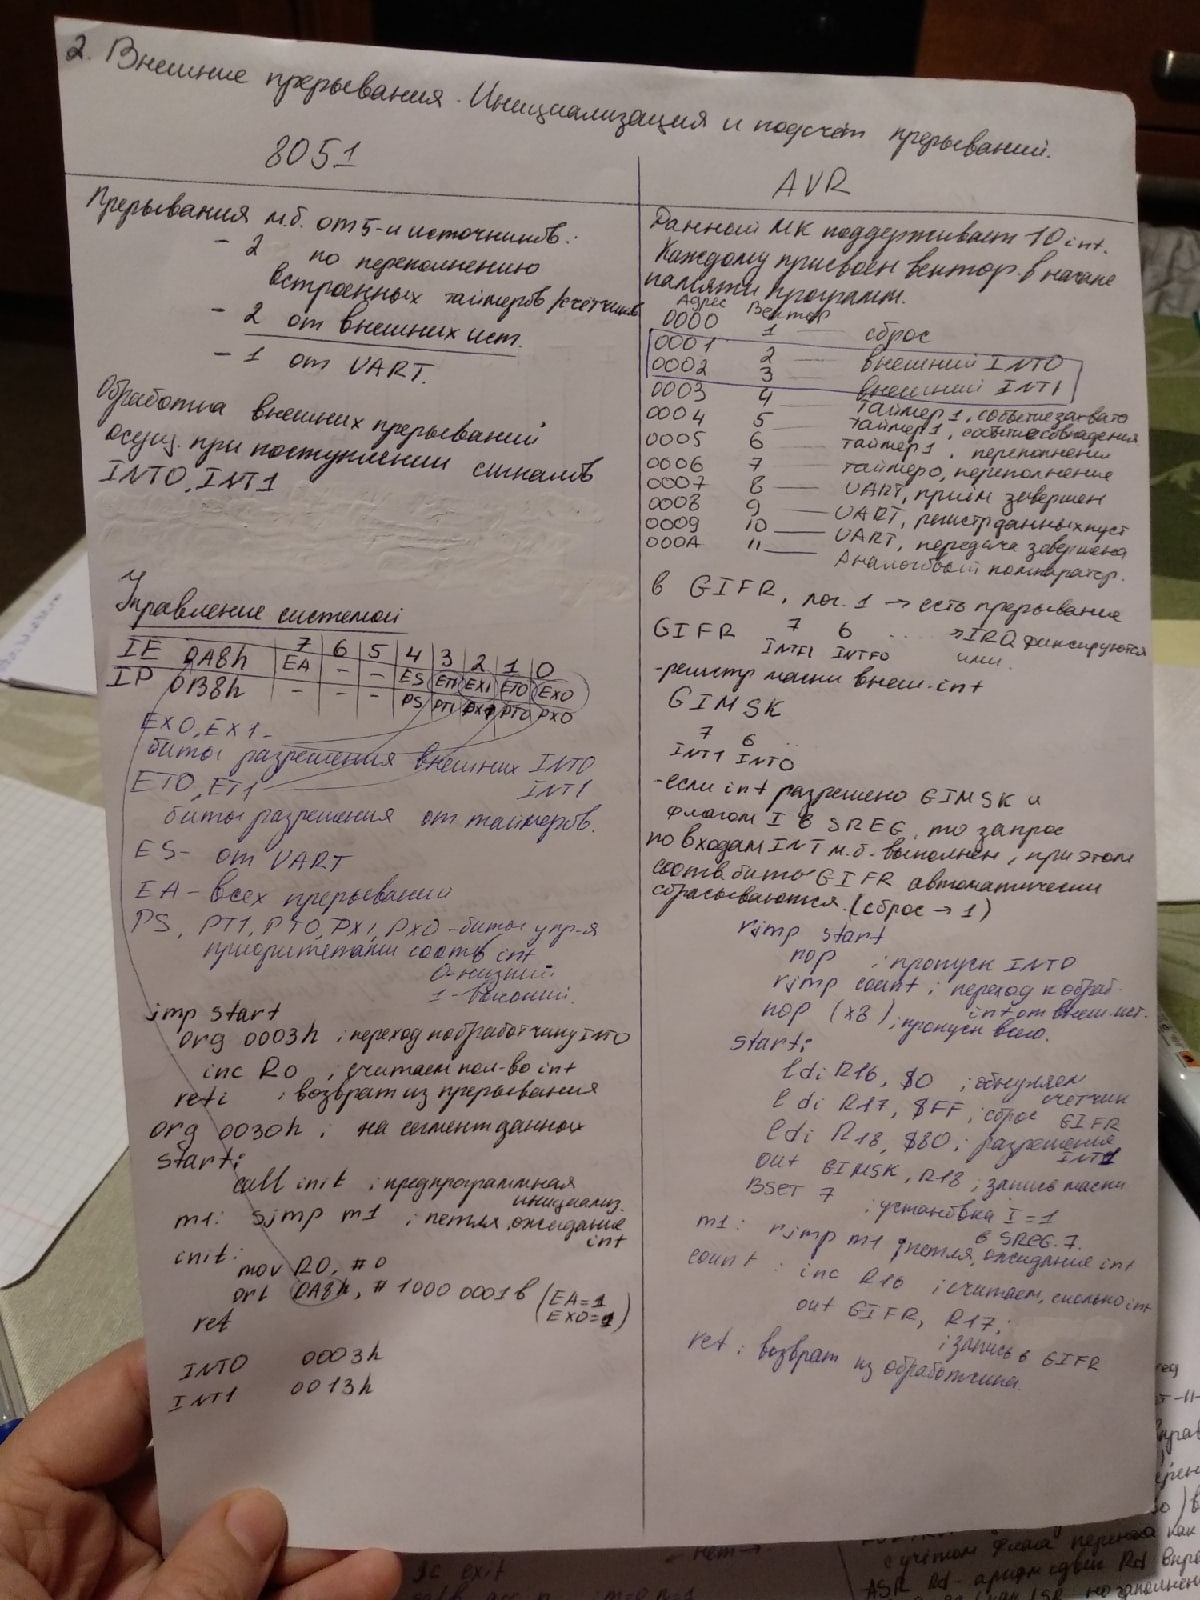 2. Внешние прерывания. Инициализация и подсчёт прерываний.
8051
Прерывания м.б. от 5-и источников:
- 2 по переполнению
встроенных таймеров/счётчиков
- 2 от внешних ист.
- 1 от UART.
Обработка внешних прерываний
осущ. при поступлении сигналов
INT0, INT1
Управление системой
7 6 5 4 3 2 1 0
IE 0A8h EA - - ES ET1 EX1 ET0 EX0
IP 0B8h - - - PS PT1 PX1 PT0 PX0
EX0, EX1 -
биты разрешения внешних INT0
INT1
ET0, ET1
биты разрешения от таймеров.
ES - от UART
EA - всех прерываний
PS, PT1, PT0, PX1, PX0 - биты упр-я
приоритетами соотв int
0-низший
1-высокий.
jmp start
org 0003h ; переход к обработчику INT0
inc R0 ; считаем кол-во int
reti ; возврат из прерывания
org 0030h ; на сегмент данных
start:
call init ; предпрограммная
инициализ.
m1: sjmp m1 ; петля, ожидание
int
init:
mov R0, #0
orl 0A8h, #1000 0001b (EA=1
EX0=1)
ret
INT0 0003h
INT1 0013h
AVR
Данный МК поддерживает 10 int.
Каждому присвоен вектор в начале
памяти программ.
Адрес Вектор
0000 1 — сброс
0001 2 — внешний INT0
0002 3 — внешний INT1
0003 4 — таймер1, событие захвата
0004 5 таймер1, событие совпадения
0005 6 таймер1, переполнения
0006 7 таймер0, переполнение
0007 8 — UART, приём завершен
0008 9 — UART, регистр данных пуст
0009 10 — UART, передача завершена
000A 11 — Аналоговый компаратор.
в GIFR, лог. 1 → есть прерывание
GIFR 7 6 ... → IRQ фиксируются
INTF1 INTF0 ими.
- регистр маски внеш. int
GIMSK
7 6 ..
INT1 INT0
- если int разрешено GIMSK и
флагом I в SREG, то запрос
по входам INT м.б. выполнен, при этом
соотв. биты GIFR автоматически
сбрасываются. (сброс → 1)
rjmp start
nop ; пропуск INT0
rjmp count ; переход к обраб.
int от внеш. ист.
nop (x8) ; пропуск всего.
start:
ldi R16, $0 ; обнуляем
счетчик
ldi R17, $FF ; сброс GIFR
ldi R18, $80 ; разрешение
INT1
out GIMSK, R18 ; запись маски
BSET 7 ; установка I=1
в SREG.7.
m1: rjmp m1 ; петля, ожидание int
count: inc R16 ; считаем, сколько int
out GIFR, R17;
; запись в GIFR
ret ; возврат из обработчика.